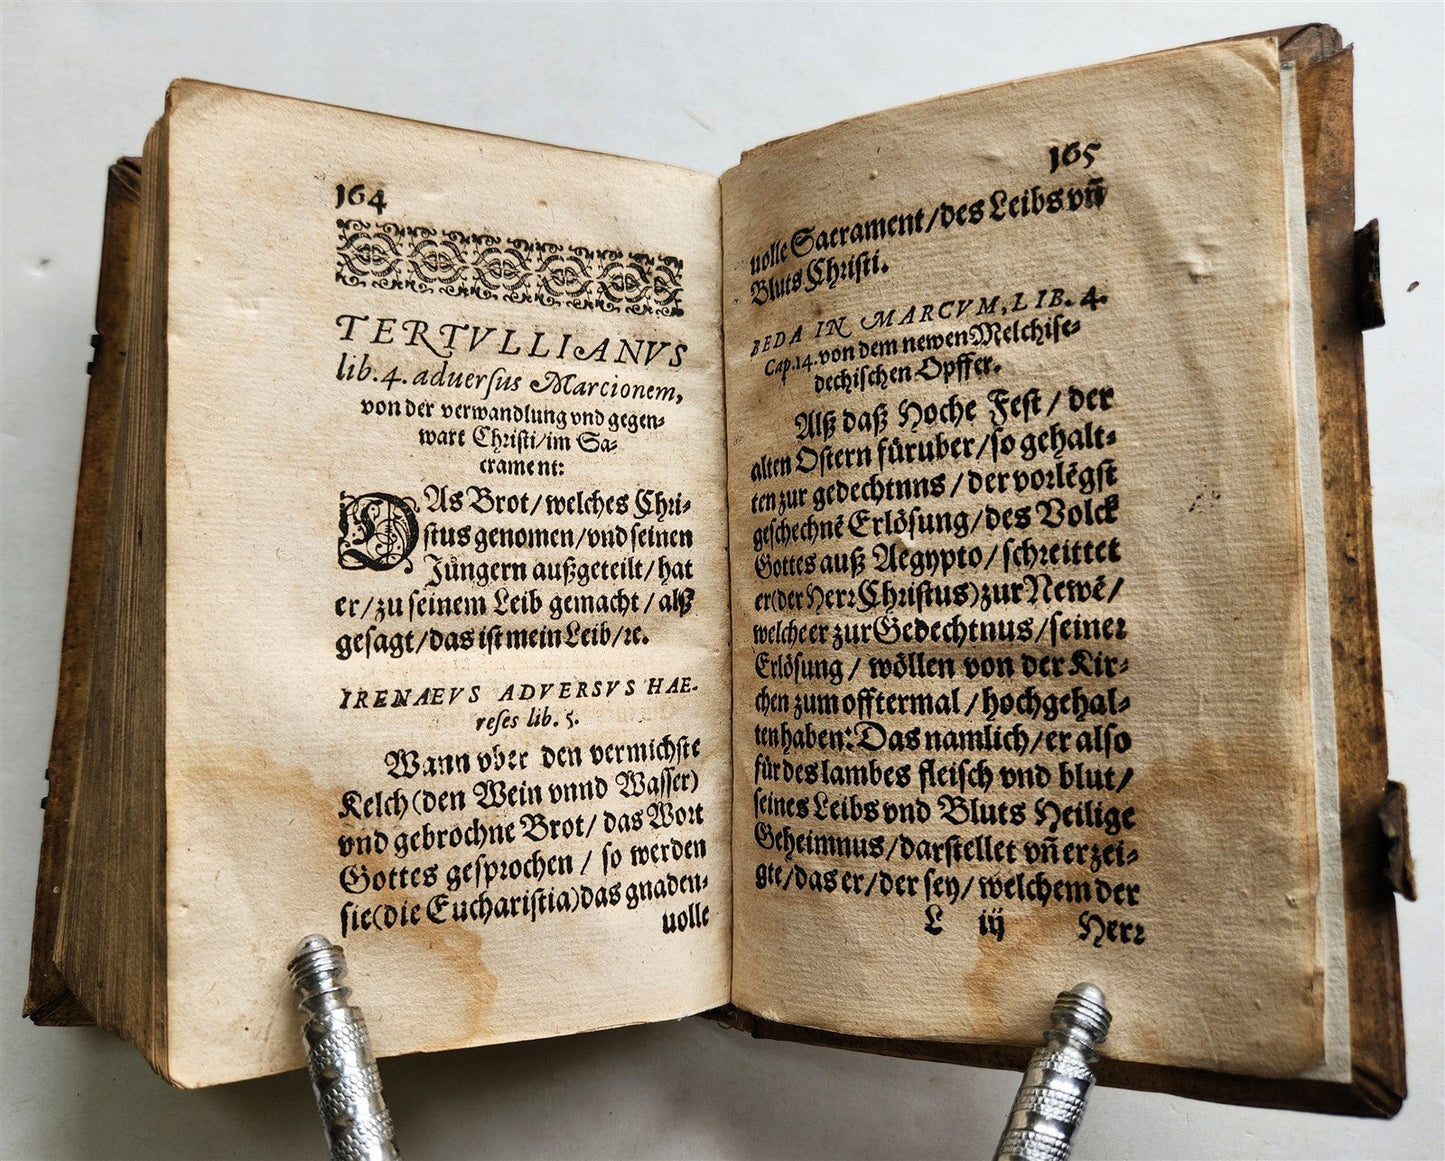 164
TERTVLLIANVS
lib. 4. aduersus Marcionem,
von der verwandlung vnd gegen-
wart Christi/im Sa-
crament:
DAs Brot/welches Chri-
stus genomen/vnd seinen
Jüngern außgeteilt/hat
er/zu seinem Leib gemacht/alß
gesagt/das ist mein Leib/ꝛc.
IRENAEVS ADVERSVS HAE-
reses lib. 5.
Wann vber den vermichste
Kelch(den Wein vnnd Wasser)
vnd gebrochne Brot/das Wort
Gottes gesprochen/so werden
sie(die Eucharistia)das gnaden-
uolle
165
uolle Sacrament/des Leibs vñ
Bluts Christi.
BEDA IN MARCVM, LIB. 4.
Cap. 14. von dem newen Melchise-
dechischen Opffer.
Alß daß Hoche Fest/der
alten Ostern füruber/so gehalt-
ten zur gedechtnns/der vorlēgst
geschechnē Erlösung/des Volck
Gottes auß Aegypto/schreittet
er(der Herr Christus)zur Newē/
welche er zur Gedechtnus/seiner
Erlösung/wöllen von der Kir-
chen zum offtermal/hochgehal-
ten haben: Das namlich/er also
für des lambes fleisch vnd blut/
seines Leibs vnd Bluts Heilige
Geheimnus/darstellet vñ erzei-
gte/das er/der sey/welchem der
L iij Herr